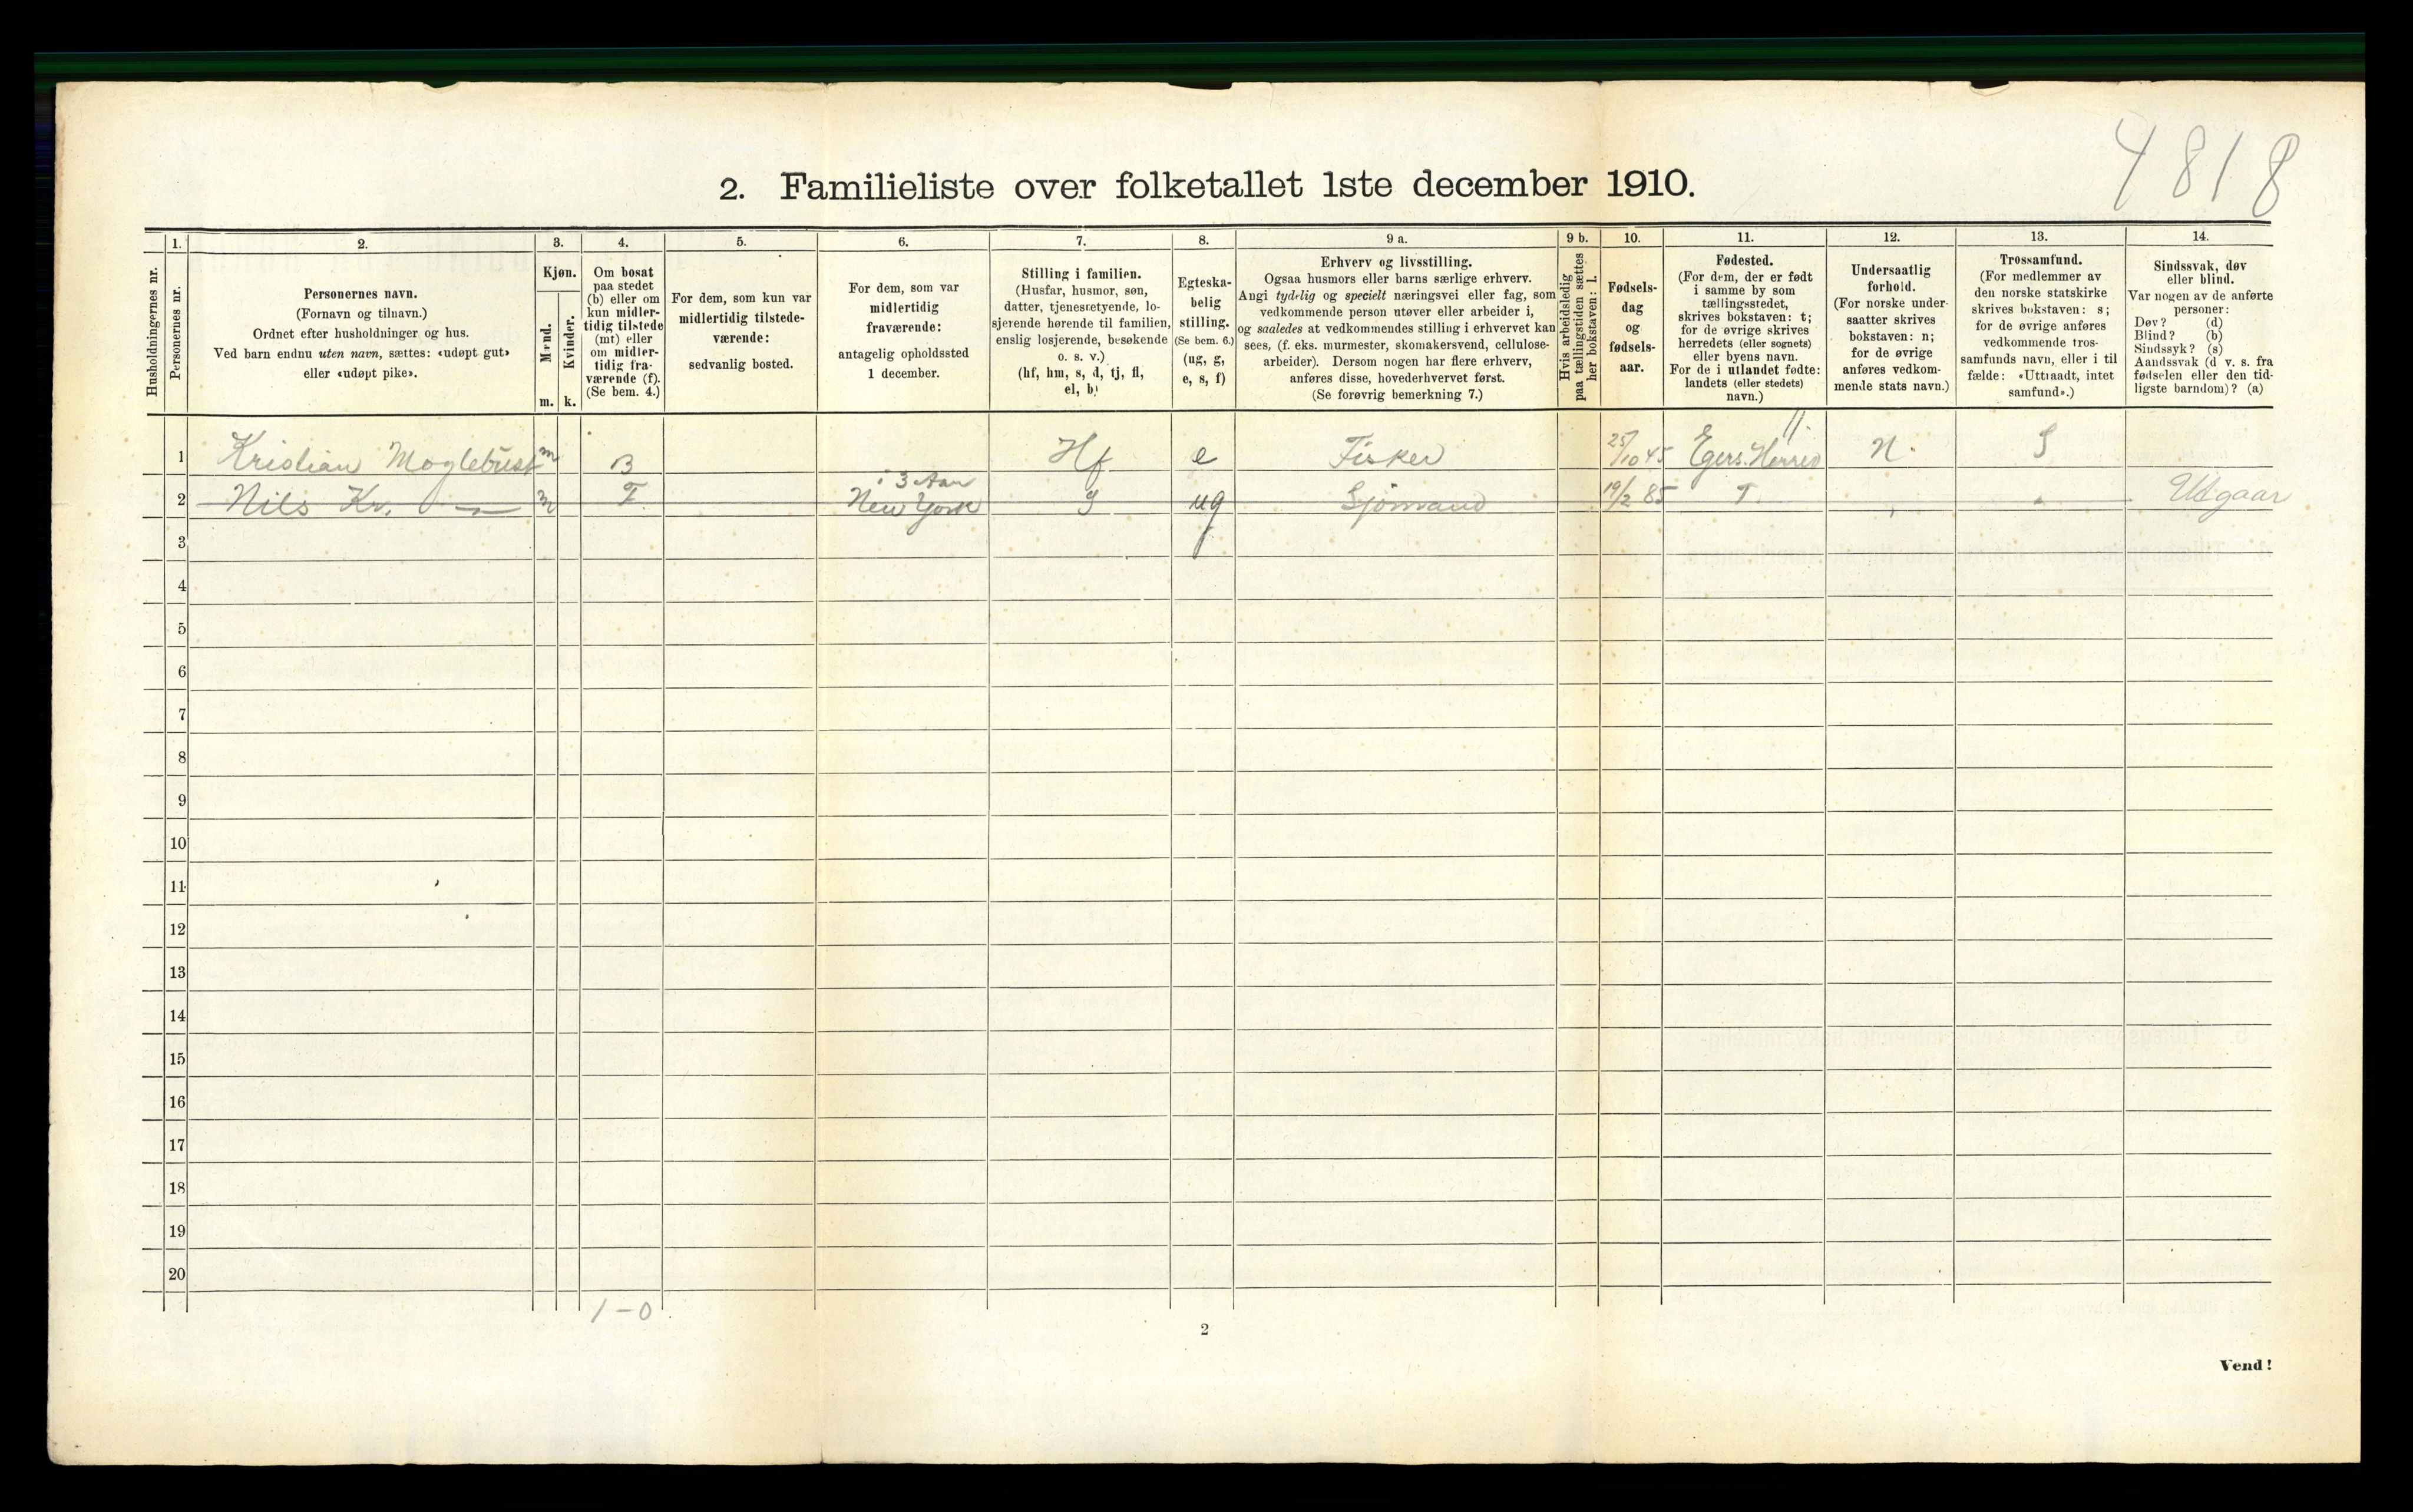 4818
2. Familieliste over folketallet 1ste december 1910.
Husholdningernes nr.
1.
Personernes nr.
2.
Personernes navn.
(Fornavn og tilnavn.)
Ordnet efter husholdninger og hus.
Ved barn endnu uten navn, sættes: «udøpt gut»
eller «udøpt pike».
3.
Kjøn.
Mænd.
m.
Kvinder.
k.
4.
Om bosat
paa stedet
(b) eller om
kun midler-
tidig tilstede
(mt) eller
om midler-
tidig fra-
værende (f).
(Se bem. 4.)
5.
For dem, som kun var
midlertidig tilstede-
værende:
sedvanlig bosted.
6.
For dem, som var
midlertidig
fraværende:
antagelig opholdssted
1 december.
7.
Stilling i familien.
(Husfar, husmor, søn,
datter, tjenestetyende, lo-
sjerende hørende til familien,
enslig losjerende, besøkende
o. s. v.)
(hf, hm, s, d, tj, fl,
el, b)
8.
Egteska-
belig
stilling.
(Se bem. 6.)
(ug, g,
e, s, f)
9 a.
Erhverv og livsstilling.
Ogsaa husmors eller barns særlige erhverv.
Angi tydelig og specielt næringsvei eller fag, som
vedkommende person utøver eller arbeider i,
og saaledes at vedkommendes stilling i erhvervet kan
sees, (f. eks. murmester, skomakersvend, cellulose-
arbeider). Dersom nogen har flere erhverv,
anføres disse, hovederhvervet først.
(Se forøvrig bemerkning 7.)
9 b.
Hvis arbeidsledig
paa tællingstiden sættes
her bokstaven: l.
10.
Fødsels-
dag
og
fødsels-
aar.
11.
Fødested.
(For dem, der er født
i samme by som
tællingsstedet,
skrives bokstaven: t;
for de øvrige skrives
herredets (eller sognets)
eller byens navn.
For de i utlandet fødte:
landets (eller stedets)
navn.)
12.
Undersaatlig
forhold.
(For norske under-
saatter skrives
bokstaven: n;
for de øvrige
anføres vedkom-
mende stats navn.)
13.
Trossamfund.
(For medlemmer av
den norske statskirke
skrives bokstaven: s;
for de øvrige anføres
vedkommende tros-
samfunds navn, eller i til
fælde: «Uttraadt, intet
samfund».)
14.
Sindssvak, døv
eller blind.
Var nogen av de anførte
personer:
Døv? (d)
Blind? (b)
Sindssyk? (s)
Aandssvak (d v. s. fra
fødselen eller den tid-
ligste barndom)? (a)
1 Kristian Moglebust m B Hf e Fisker 25/10 45 Egers. Herred 11. N. S
2 Nils Kr. — m F i 3 Aar New York S ug Sjømand 19/2 85 T. " " Udgaar
3
4
5
6
7
8
9
10
11
12
13
14
15
16
17
18
19
20
1 – 0
2
Vend!